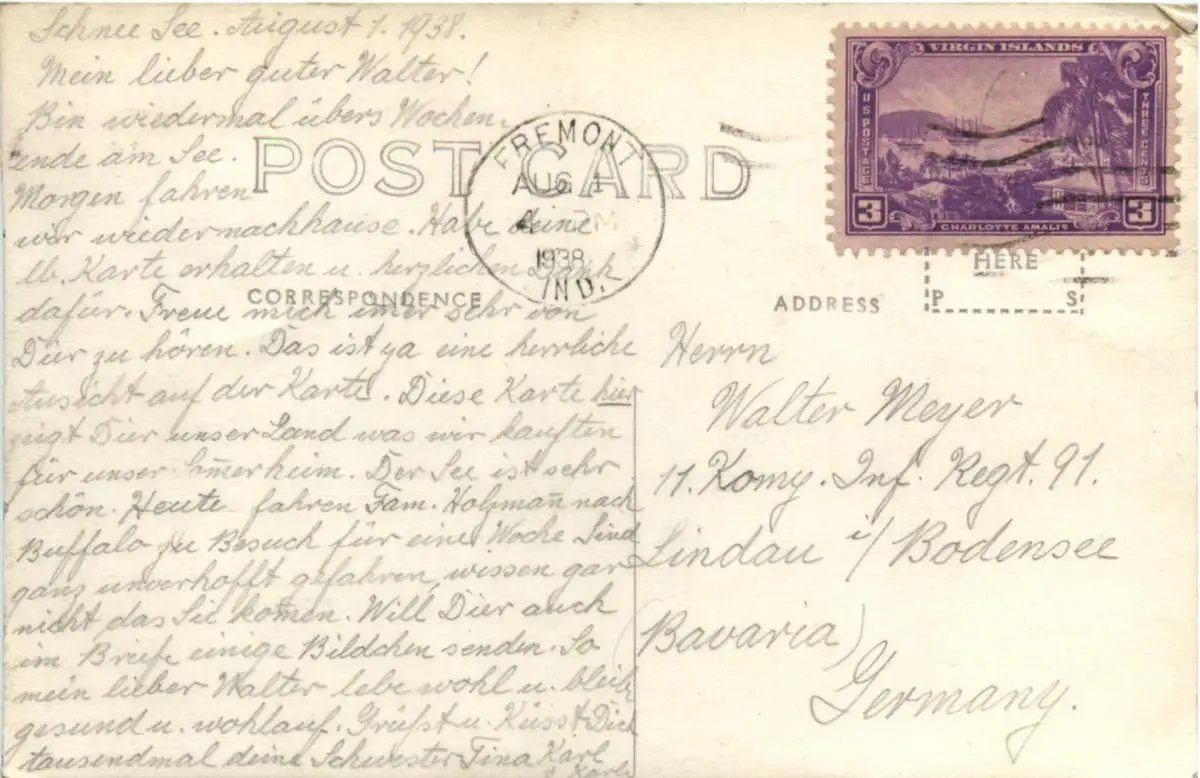 Schnee See. August 1. 1938.
Mein lieber guter Walter!
Bin wiedermal übers Wochen-
ende am See.
Morgen fahren
wir wiedernachhause Habe deine
lb. Karte erhalten u. herzlichen Dank
dafür. Freue mich imer sehr von
Dier zu hören. Das ist ya eine herrliche
Aussicht auf der Karte. Diese Karte hier
zeigt Dier unser Land was wir kauften
für unser Somerheim. Der See ist sehr
schön. Heute fahren Fam. Holzmañ nach
Buffalo zu Besuch für eine Woche Sind
ganz unverhofft gefahren, wissen gar
nicht das Sie komen. Will Dier auch
im Briefe einige Bildchen senden. So
mein lieber Walter lebe wohl u. bleib
gesund u. wohlauf. Grüsst u. Küsst Dich
tausendmal deine Schwester Tina Karl
u. Karle
POST CARD
CORRESPONDENCE
FREMONT
AUG 1
4 PM
1938
IND.
VIRGIN ISLANDS
US POSTAGE
THREE CENTS
3
3
CHARLOTTE AMALIE
HERE
P S
ADDRESS
Herrn
Walter Meyer
11. Komp. Inf. Regt. 91.
Lindau i/Bodensee
(Bavaria)
Germany.